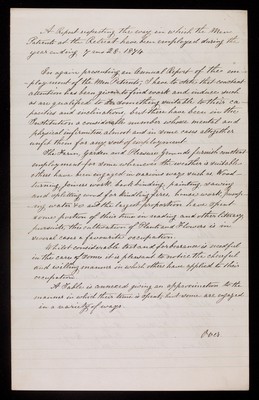 A Report respecting the way in which the Men
Patients at the Retreat have been employed during the
year ending 7 mo 28. 1874
In again presenting an Annual Report of the em-
ployment of the Men Patients, I have to state that constant
attention has been given to find work and induce such
as are qualified to do something suitable to their ca-
pacities and inclination, but there have been in the
Institution a considerable number whose mental and
physical infirmities almost and in some cases altogether
unfit them for any sort of employment.
The Farm, Garden and Pleasure Grounds furnish outdoor
employment for some whenever the weather is suitable
others have been engaged in various ways such as Wood-
turning, joiners work, book binding, painting, sawing
and splitting wood for kindling fires, house work, pump-
ing water &c and the largest proportion have spent
some portion of their time in reading and other literary
pursuits, the cultivation of Plants and Flowers is in
several cases a favourite occupation.
Whilst considerable tact and forbearance is needful
in the care of some it is pleasant to notice the cheerful
and willing manner in which others have applied to their
occupation
A Table is annexed giving an approximation to the
manner in which their time is spent, but some are engaged
in a variety of ways.
Over.